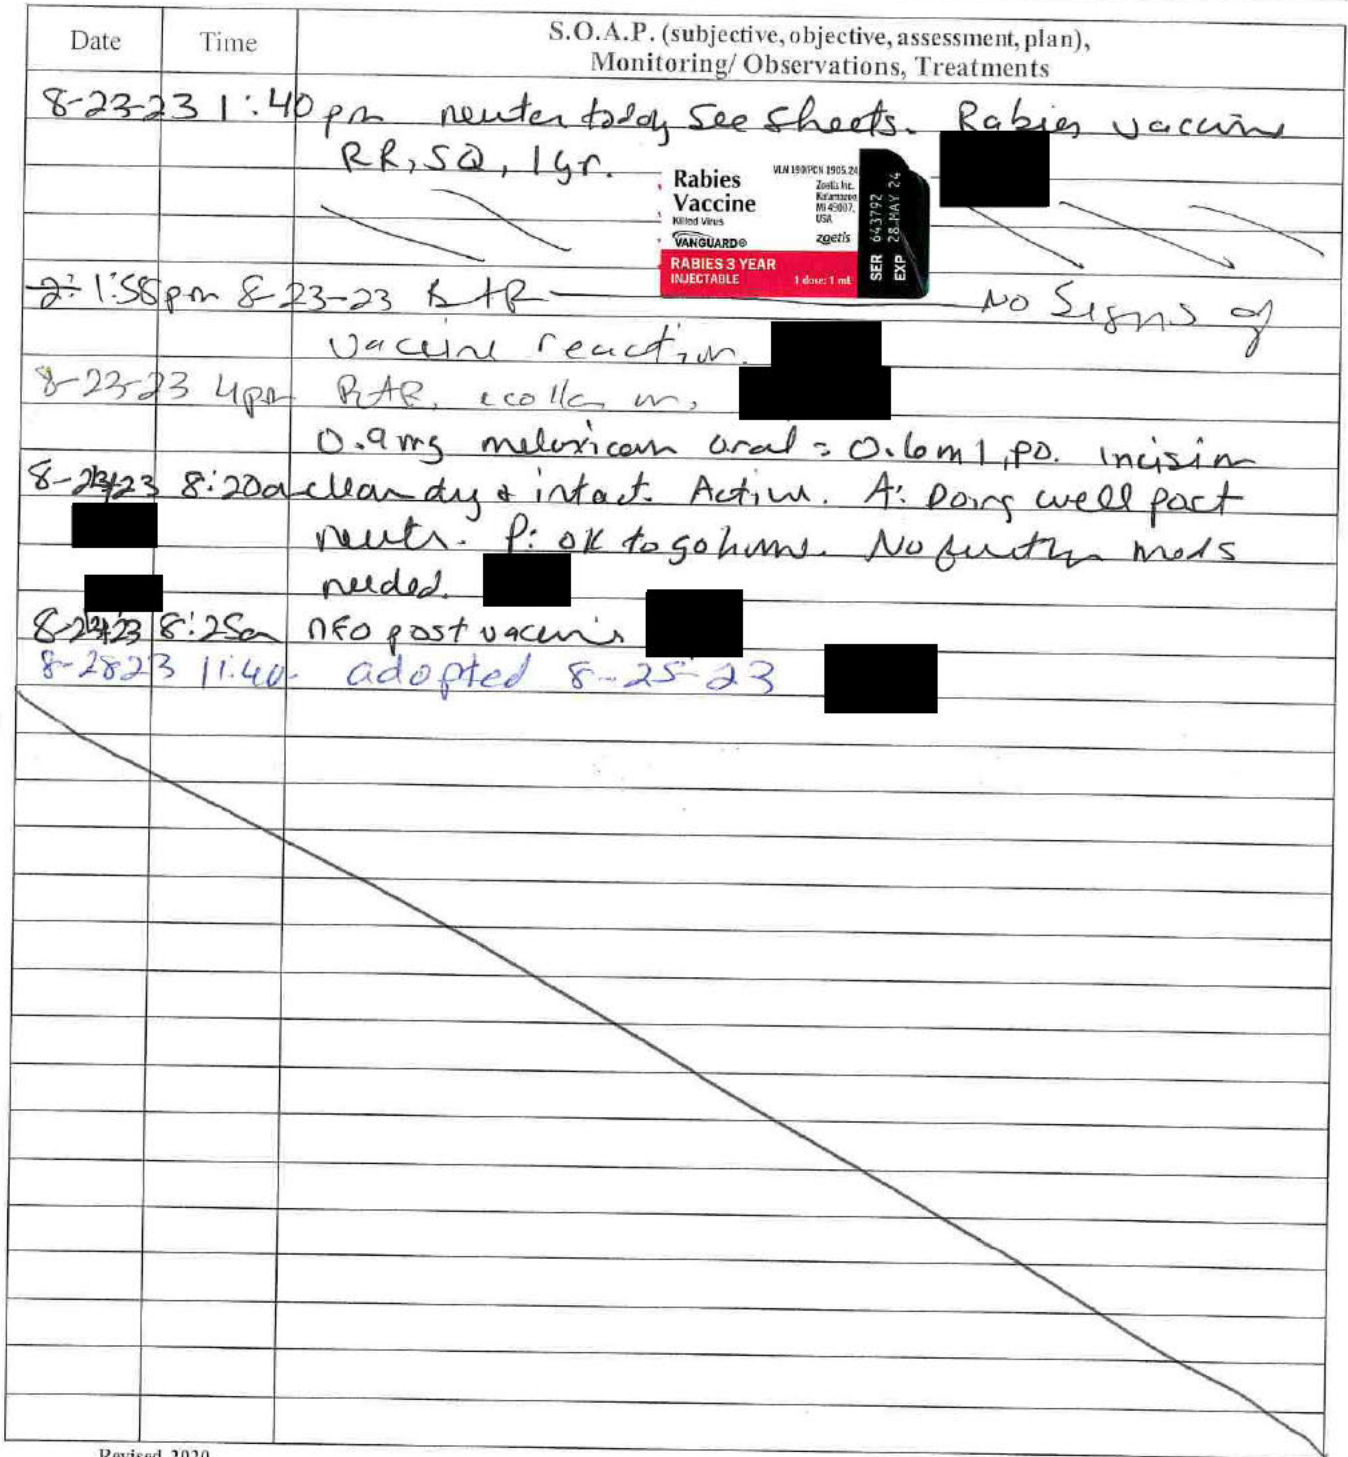 Date Time S.O.A.P. (subjective, objective, assessment, plan),
Monitoring/ Observations, Treatments
8-23-23 1:40pm neuter today see sheets. Rabies vaccine
RR, SQ, 1yr.
Rabies
Vaccine
Killed Virus
VANGUARD®
RABIES 3 YEAR
INJECTABLE
1 dose: 1 mL
VLN 190/PCN 1905.24
Zoetis Inc.
Kalamazoo,
MI 49007,
USA
zoetis
SER 643792
EXP 28 MAY 24
1:58pm 8-23-23 BAR No Signs of
vaccine reaction.
8-23-23 4pm BAR, ecollar on,
0.9mg meloxicam oral = 0.6ml, po. incision
8-24-23 8:20a clean dry & intact. Active. A: Doing well post
neuter. P: ok to go home. No further meds
needed.
8-24-23 8:25a post vaccine
8-28-23 11:40 adopted 8-25-23
Revised 2020